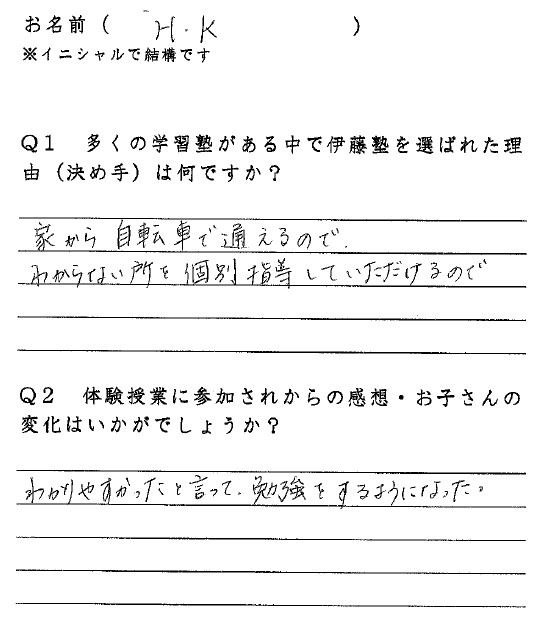 お名前( H.K )
※イニシャルで結構です
Q1 多くの学習塾がある中で伊藤塾を選ばれた理
由(決め手)は何ですか?
家から自転車で通えるので、
わからない所を個別指導していただけるので
Q2 体験授業に参加されからの感想・お子さんの
変化はいかがでしょうか?
わかりやすかったと言って、勉強をするようになった。